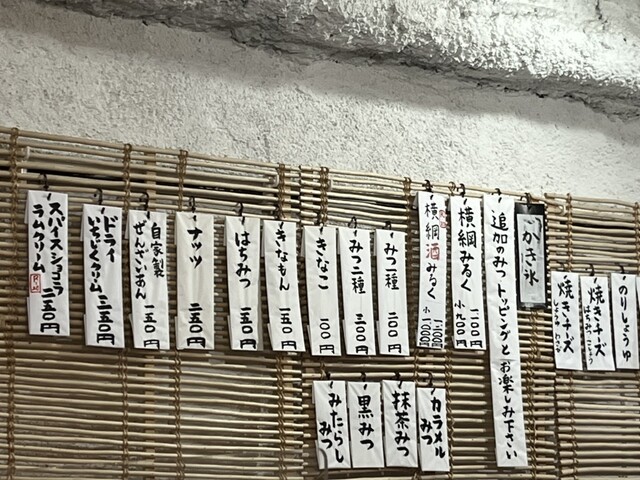 かき氷
追加のみつトッピングとお楽しみ下さい
横綱みるく
一二〇〇円
小九〇〇円
横綱酒みるく
みつ一種
二〇〇円
みつ二種
三〇〇円
きなこ
一〇〇円
きなもん
一五〇円
はちみつ
一五〇円
ナッツ
二五〇円
自家製
ぜんざいあん
一五〇円
ドライ
いちじくクリーム
二五〇円
スパイスショコラ
ラムクリーム
二五〇円
カラメル
みつ
抹茶みつ
黒みつ
みたらし
みつ
のりしょうゆ
焼きチーズ
はちみつ こしょう
焼きチーズ
しょうゆ わさび